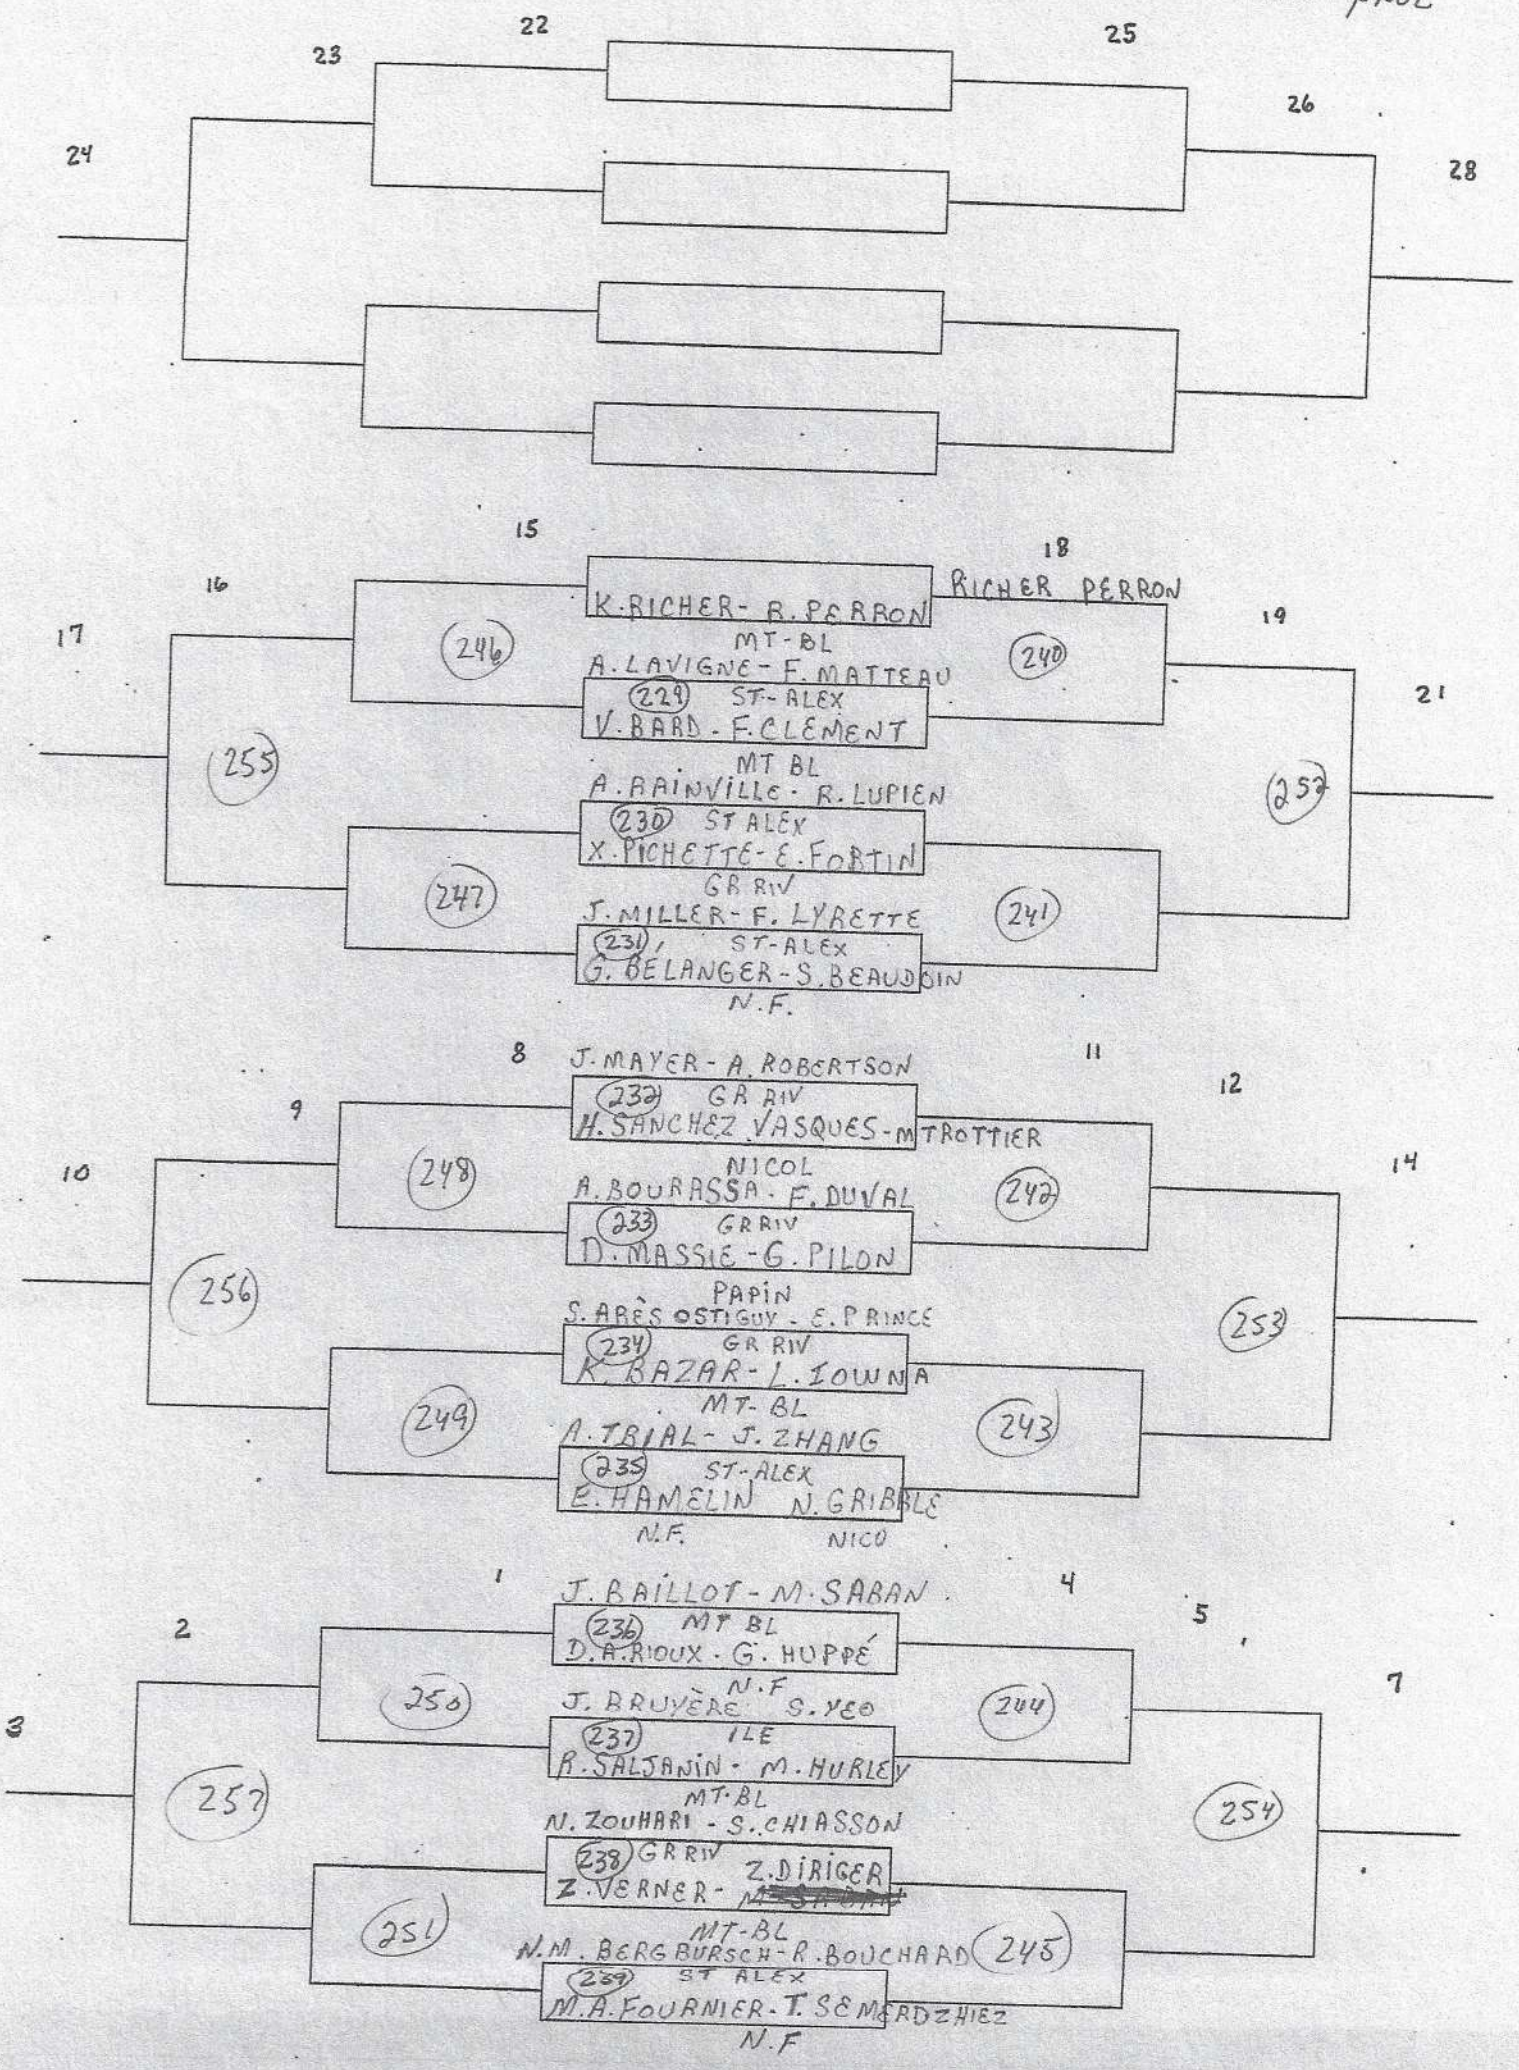 22
25
23
26
24
28
15
18
K. RICHER - R. PERRON
RICHER PERRON
16
19
17
MT-BL
246
240
A. LAVIGNE - F. MATTEAU
229 ST-ALEX
21
V. BARD - F. CLEMENT
255
MT BL
252
A. RAINVILLE - R. LUPIEN
230 ST ALEX
X. PICHETTE - E. FORTIN
247
GR RIV
241
J. MILLER - F. LYRETTE
231 ST-ALEX
G. BÉLANGER - S. BEAUDOIN
N.F.
8
11
J. MAYER - A. ROBERTSON
12
9
232 GR RIV
H. SANCHEZ VASQUES - M TROTTIER
10
14
248
NICOL
242
A. BOURASSA - F. DUVAL
233 GR RIV
D. MASSIE - G. PILON
256
PAPIN
253
S. ARÈS OSTIGUY - E. PRINCE
234 GR RIV
K. BAZAR - L. IOWNA
249
MT-BL
243
A. TRIAL - J. ZHANG
235 ST-ALEX
E. HAMELIN N. GRIBBLE
N.F. NICO
1
4
J. BAILLOT - M. SABAN
5
2
236 MT BL
D.A. RIOUX - G. HUPPÉ
7
250
N.F
244
3
J. BRUYÈRE S. YEO
237 ILE
R. SALJANIN - M. HURLEY
257
MT-BL
254
N. ZOUHARI - S. CHIASSON
238 GR RIV Z. DIRIGER
Z. VERNER - M SABAN
251
MT-BL
245
N.M. BERGBURSCH - R. BOUCHARD
239 ST ALEX
M.A. FOURNIER - T. SEMERDZHIEZ
N.F